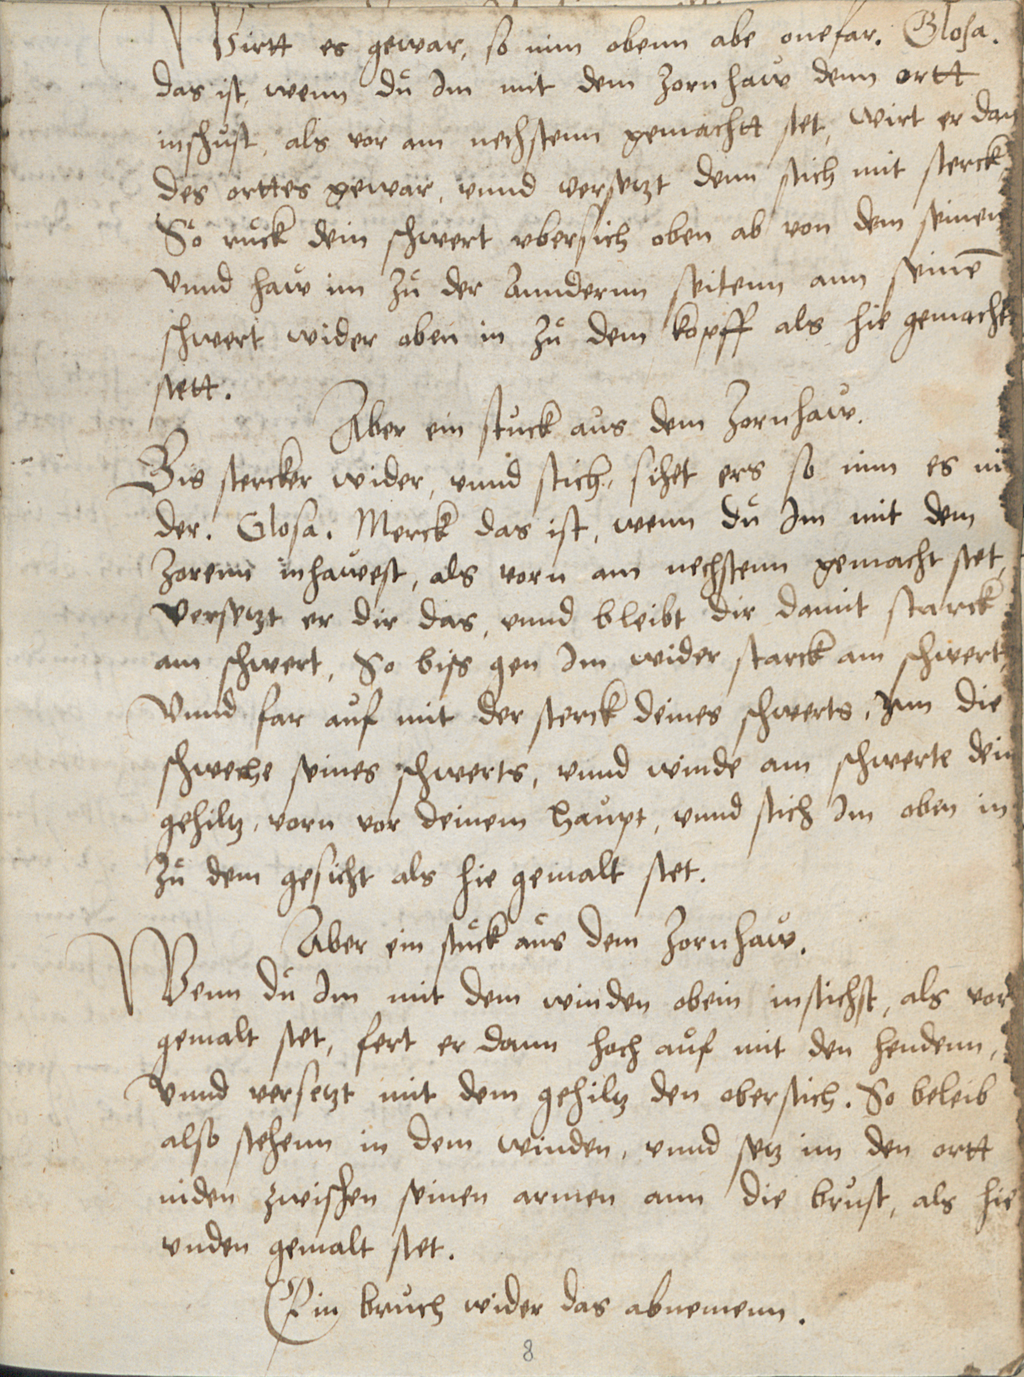 Wirtt es gewar, so nim obenn abe onefar. Glosa.
das ist, wenn dů Im mit dem Zornhaw denn ortt
inschůst, als vor am nechstenn gemachtt stet, wirt er dan
des orttes gewar, vnnd versetzt denn stich mit sterck
So růck dein schwert vbersich oben ab von dem seinen
Vnnd haw im Zů der Annderm seitenn ann seinē
schwert wider oben in Zů dem kopff als hie gemacht
stett.
Aber ein stůck aůs dem Zornhaw.
Bis stercker wider, vnnd stich, sihet ers so nim es ni
der. Glosa. Merck das ist, wenn dů Im mit dem
Zorenn inhawest, als vorn am nechstenn gemacht stet,
Versetzt er dir das, vnnd bleibt dir damit starck
am schwert, So biss gen Im wider starck am schwert,
Vnnd far aůf mit der sterck deines schwerts, Inn die
schweche seines schwerts, vnnd winde am schwerte dein
gehiltz, vorn vor deinem haůpt, vnnd stich Im oben in
Zů dem gesicht als hie gemalt stet.
Aber ein stůck aůs dem Zornhaw.
Wenn dů Im mit dem winden obein instichst, als vor
gemalt stet, fert er dann hoch aůf mit den hendenn,
Vnnd versetzt mit dem gehiltz den oberstich. So beleib
also stehenn in dem winden, vnnd setz im den ortt
niden zwischen seinen armen ann die brůst, als hie
vnden gemalt stet.
Ein brůch wider das abnemenn.
8